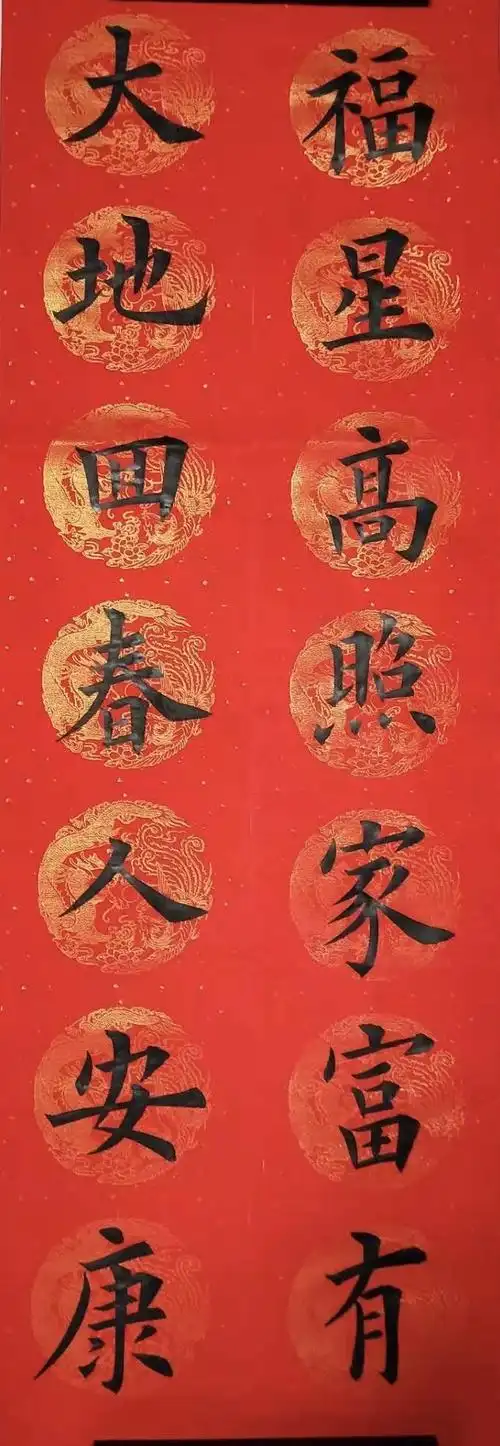 福星高照家富有
大地囬春人安康